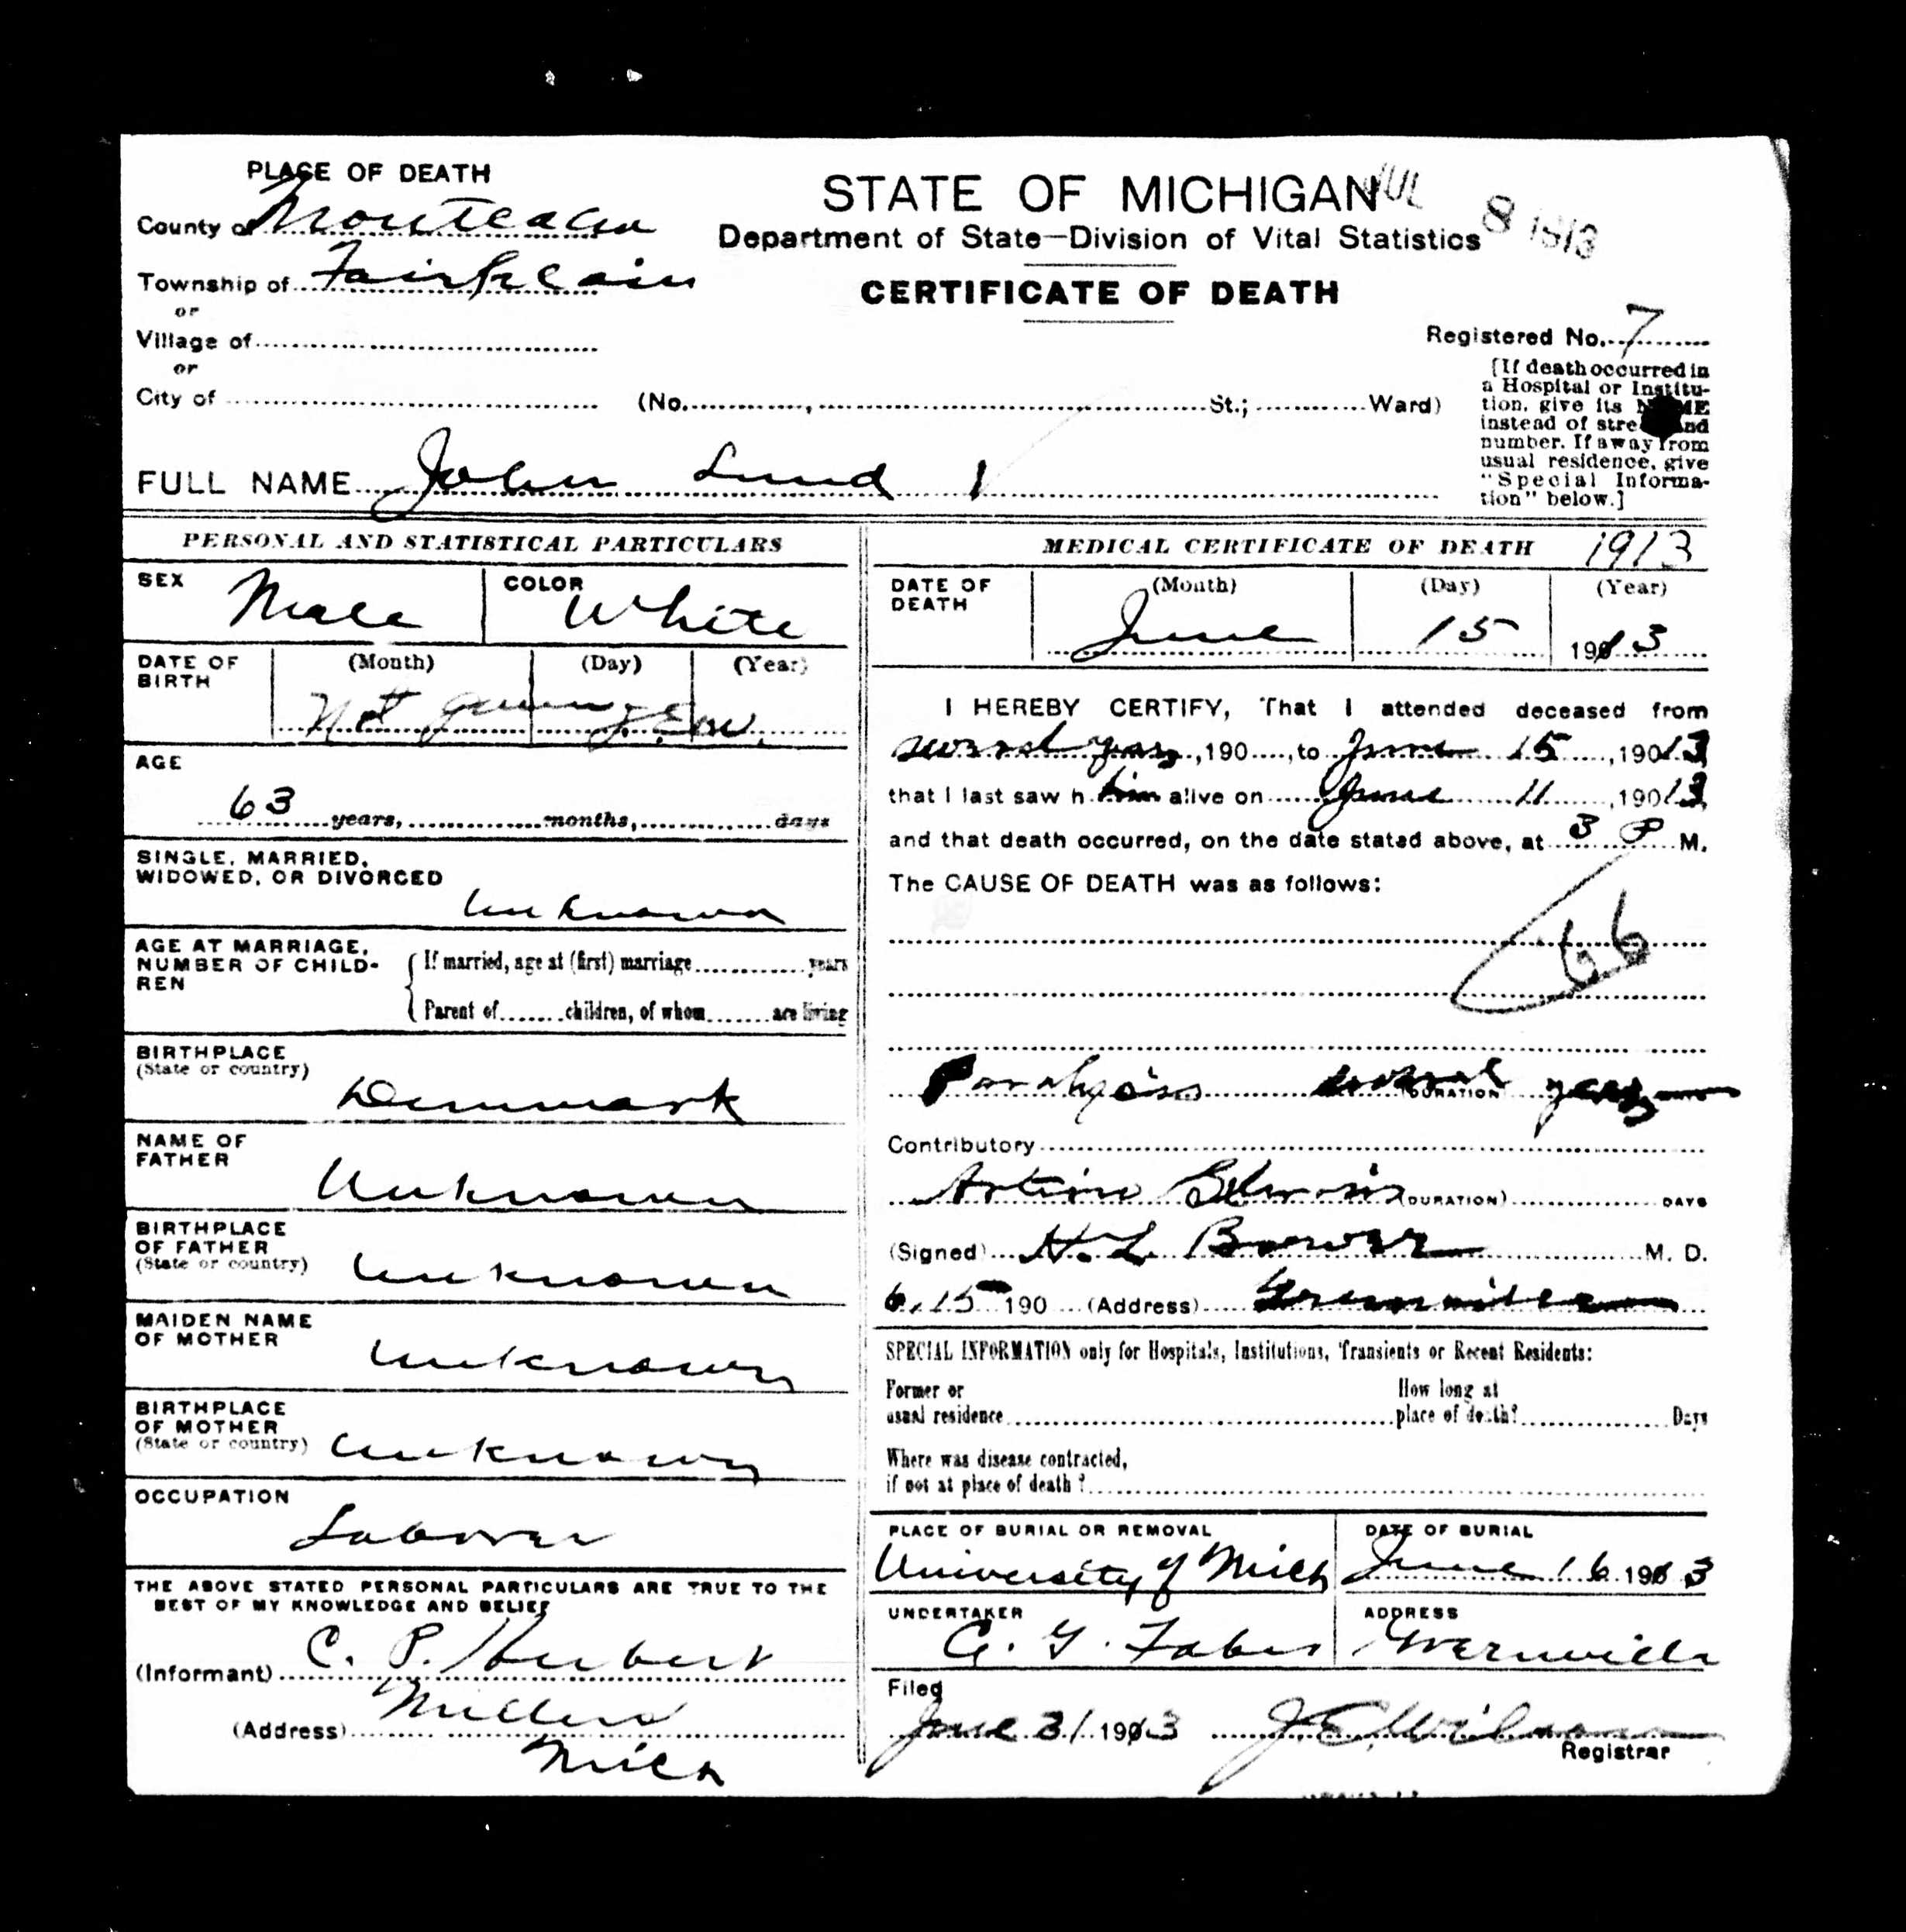 PLACE OF DEATH
County of Montcalm
Township of Fairplain
or
Village of
or
City of
(No. , St.; Ward)
STATE OF MICHIGAN
JUL 8 1913
Department of State—Division of Vital Statistics
CERTIFICATE OF DEATH
Registered No. 7
[If death occurred in
a Hospital or Institu-
tion, give its NAME
instead of street and
number. If away from
usual residence, give
"Special Informa-
tion" below.]
FULL NAME John Lund
PERSONAL AND STATISTICAL PARTICULARS
SEX Male
COLOR White
DATE OF BIRTH
(Month) (Day) (Year)
Not given J.E.W.
AGE
63 years, months, days
SINGLE, MARRIED,
WIDOWED, OR DIVORCED
unknown
AGE AT MARRIAGE,
NUMBER OF CHILD-
REN
If married, age at (first) marriage years
Parent of children, of whom are living
BIRTHPLACE
(State or country)
Denmark
NAME OF
FATHER
Unknown
BIRTHPLACE
OF FATHER
(State or country)
Unknown
MAIDEN NAME
OF MOTHER
Unknown
BIRTHPLACE
OF MOTHER
(State or country)
Unknown
OCCUPATION
Laborer
THE ABOVE STATED PERSONAL PARTICULARS ARE TRUE TO THE
BEST OF MY KNOWLEDGE AND BELIEF
(Informant) C. P. Herbert
(Address)
Mich
MEDICAL CERTIFICATE OF DEATH 1913
DATE OF
DEATH
(Month) (Day) (Year)
June 15 1913
I HEREBY CERTIFY, That I attended deceased from
several years, 190 , to June 15, 19013
that I last saw h him alive on June 11, 19013
and that death occurred, on the date stated above, at 3 P M.
The CAUSE OF DEATH was as follows:
66
Paralysis several (DURATION) years
Contributory
(DURATION) DAYS
(Signed) H. L. Bower M. D.
6, 15 190 (Address) Greenville
SPECIAL INFORMATION only for Hospitals, Institutions, Transients or Recent Residents:
Former or
usual residence
How long at
place of death? Days
Where was disease contracted,
if not at place of death?
PLACE OF BURIAL OR REMOVAL
University of Mich
DATE OF BURIAL
June 16 1913
UNDERTAKER
ADDRESS
Greenville
Filed
June 31 1913 J.E. Wilson
Registrar